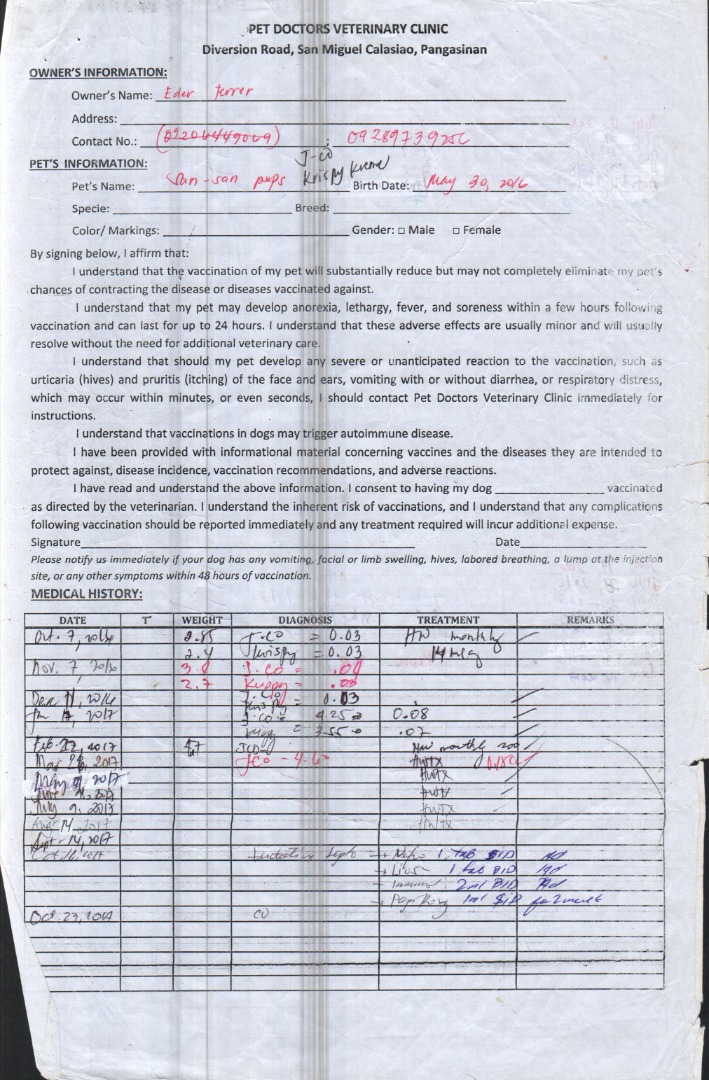 PET DOCTORS VETERINARY CLINIC
Diversion Road, San Miguel Calasiao, Pangasinan
OWNER'S INFORMATION:
Owner's Name: Eder ferrer
Address:
Contact No.: (09206449069) ; 09289739256
J-CO
PET'S INFORMATION:
Pet's Name: San-san pups Krispy Kreme Birth Date: May 30, 2016
Specie: Breed:
Color/ Markings: Gender: □ Male □ Female
By signing below, I affirm that:
I understand that the vaccination of my pet will substantially reduce but may not completely eliminate my pet's
chances of contracting the disease or diseases vaccinated against.
I understand that my pet may develop anorexia, lethargy, fever, and soreness within a few hours following
vaccination and can last for up to 24 hours. I understand that these adverse effects are usually minor and will usually
resolve without the need for additional veterinary care.
I understand that should my pet develop any severe or unanticipated reaction to the vaccination, such as
urticaria (hives) and pruritis (itching) of the face and ears, vomiting with or without diarrhea, or respiratory distress,
which may occur within minutes, or even seconds, I should contact Pet Doctors Veterinary Clinic immediately for
instructions.
I understand that vaccinations in dogs may trigger autoimmune disease.
I have been provided with informational material concerning vaccines and the diseases they are intended to
protect against, disease incidence, vaccination recommendations, and adverse reactions.
I have read and understand the above information. I consent to having my dog vaccinated
as directed by the veterinarian. I understand the inherent risk of vaccinations, and I understand that any complications
following vaccination should be reported immediately and any treatment required will incur additional expense.
Signature Date
Please notify us immediately if your dog has any vomiting, facial or limb swelling, hives, labored breathing, a lump at the injection
site, or any other symptoms within 48 hours of vaccination.
MEDICAL HISTORY:
DATE T° WEIGHT DIAGNOSIS TREATMENT REMARKS
Oct. 7, 2016 2.85 J.CO = 0.03 HW monthly
2.4 Krispy = 0.03
Nov. 7 2016 3.8 J.CO =
2.7
Dec 11, 2016 J.CO 0.13
Jan 17, 2017 J.CO = 4.25 0.08
= 3.55 .07
Feb. 22, 2017 JCO HW monthly
Mar 26, 2017 JCO - 4.6 HWTX
May 9, 2017 HWTX
June 9, 2017 HWTX
July 9, 2017 HWTX
Aug 14, 2017 HWTX
Sept - 14, 2017
Oct. 16, 2017 → 1 tab SID
→ Liv 1 tab BID
→ Immuno 2ml BID
→ 1ml SID
Oct. 23, 2017